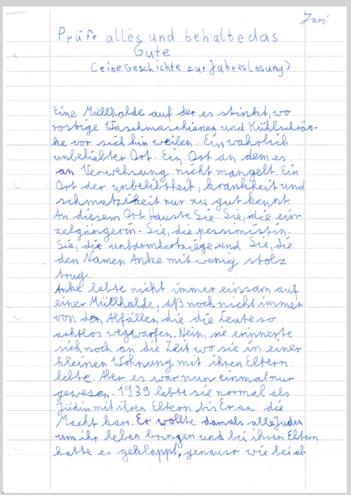 Jari
Prüfe alles und behalte das
Gute
(eine Geschichte zur Jahreslosung)
Eine Müllhalde auf der es stinkt, wo
rostige Waschmaschienen und Kühlschrän-
ke vor sich hin weilen. Ein wahrlich
unbeliebter Ort. Ein Ort an dem es
an Verwesung nicht mangelt. Ein
Ort der unbeliebtheit, krankheit und
schmutzikeit nur zu gut kennt.
An diesem Ort Hauste Sie. Sie, die ein-
zelgängerin. Sie, die pessimistin.
Sie, die und Sie, die
den Namen Anke mit wenig stolz
trug.
Anke lebte nicht immer einsam auf
einer Müllhalde, aß noch nicht immer
von den Abfällen, die die Leute so
achtlos wegwarfen. Nein, sie erinnerte
sich noch an die Zeit wo sie in einer
kleinen Wohnung mit ihren Eltern
lebte. Aber es war nun einmal nur
gewesen. 1939 lebte sie normal als
Jüdin mit ihren Eltern bis Er an die
Macht kam. Er wollte damals alle Juden
um ihr leben bringen und bei ihren Eltern
hatte es geklappt, genauso wie bei ab